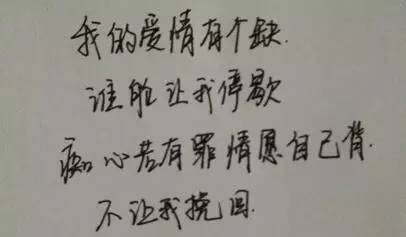 我的爱情有个缺.
谁能让我停歇
痴心若有罪情愿自己背.
不让我挽回.